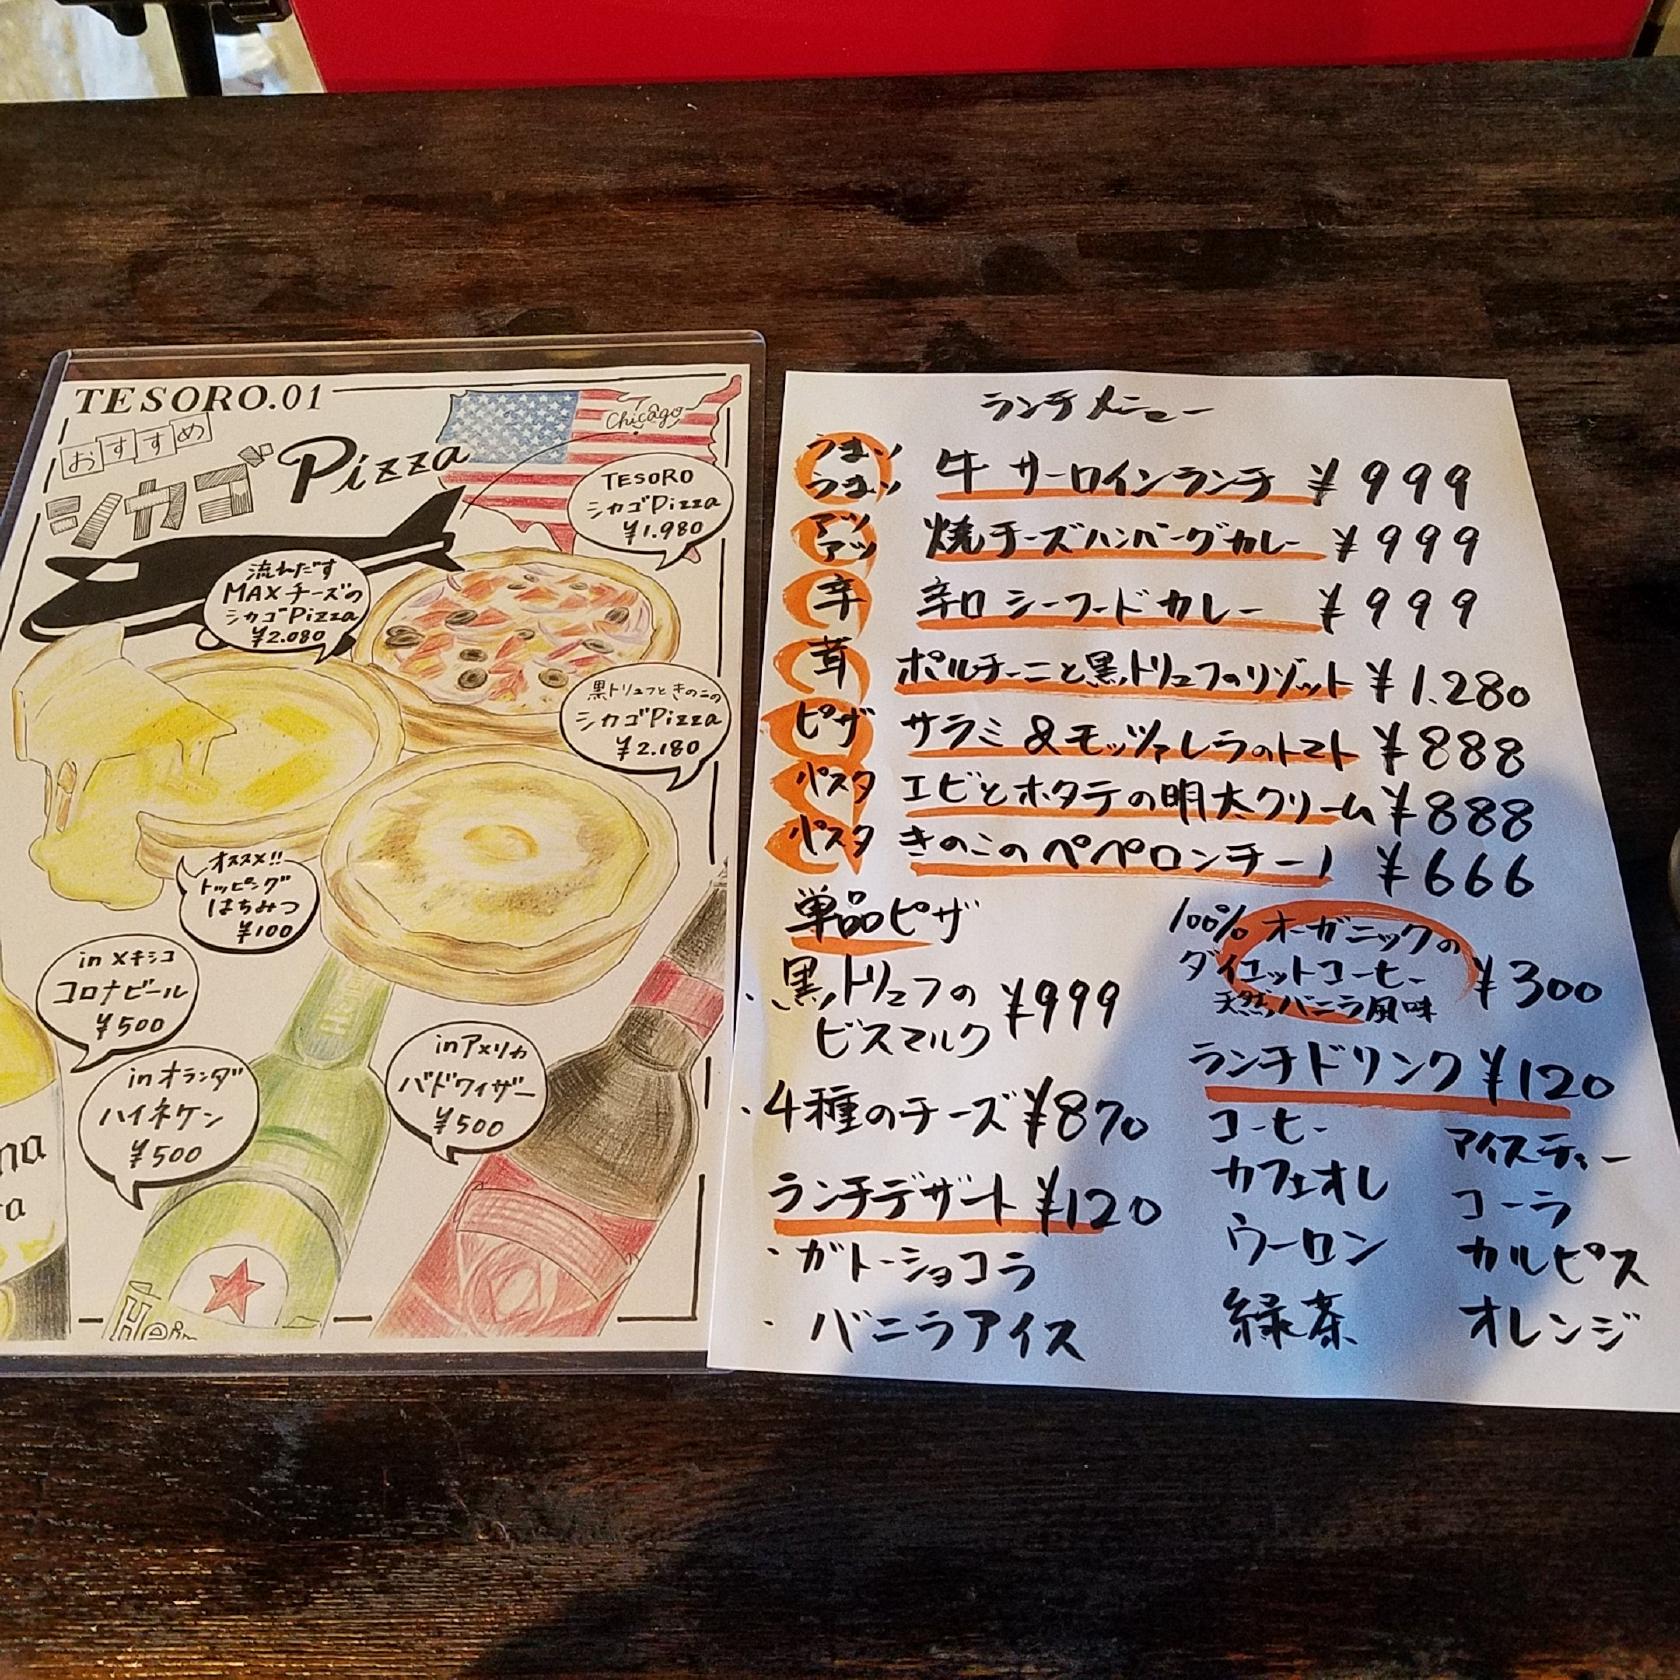 TESORO.01
おすすめ
シカゴ Pizza
Chicago
TESORO
シカゴPizza
¥1.980
流れだす
MAXチーズの
シカゴPizza
¥2.080
黒トリュフときのこの
シカゴPizza
¥2.180
オススメ!!
トッピング
はちみつ
¥100
in メキシコ
コロナビール
¥500
in オランダ
ハイネケン
¥500
in アメリカ
バドワイザー
¥500
ランチメニュー
うまッ
うまッ
牛 サーロインランチ ¥999
アツ
アツッ
焼チーズハンバーグカレー ¥999
辛 辛口 シーフードカレー ¥999
茸 ポルチーニと黒トリュフのリゾット ¥1.280
ピザ サラミ&モッツァレラのトマト ¥888
パスタ エビとホタテの明太クリーム ¥888
パスタ きのこのペペロンチーノ ¥666
単品ピザ
・黒トリュフの
ビスマルク ¥999
・4種のチーズ ¥870
ランチデザート ¥120
・ガトーショコラ
・バニラアイス
100% オーガニックの
ダイエットコーヒー ¥300
天然バニラ風味
ランチドリンク ¥120
コーヒー アイスティー
カフェオレ コーラ
ウーロン カルピス
緑茶 オレンジ